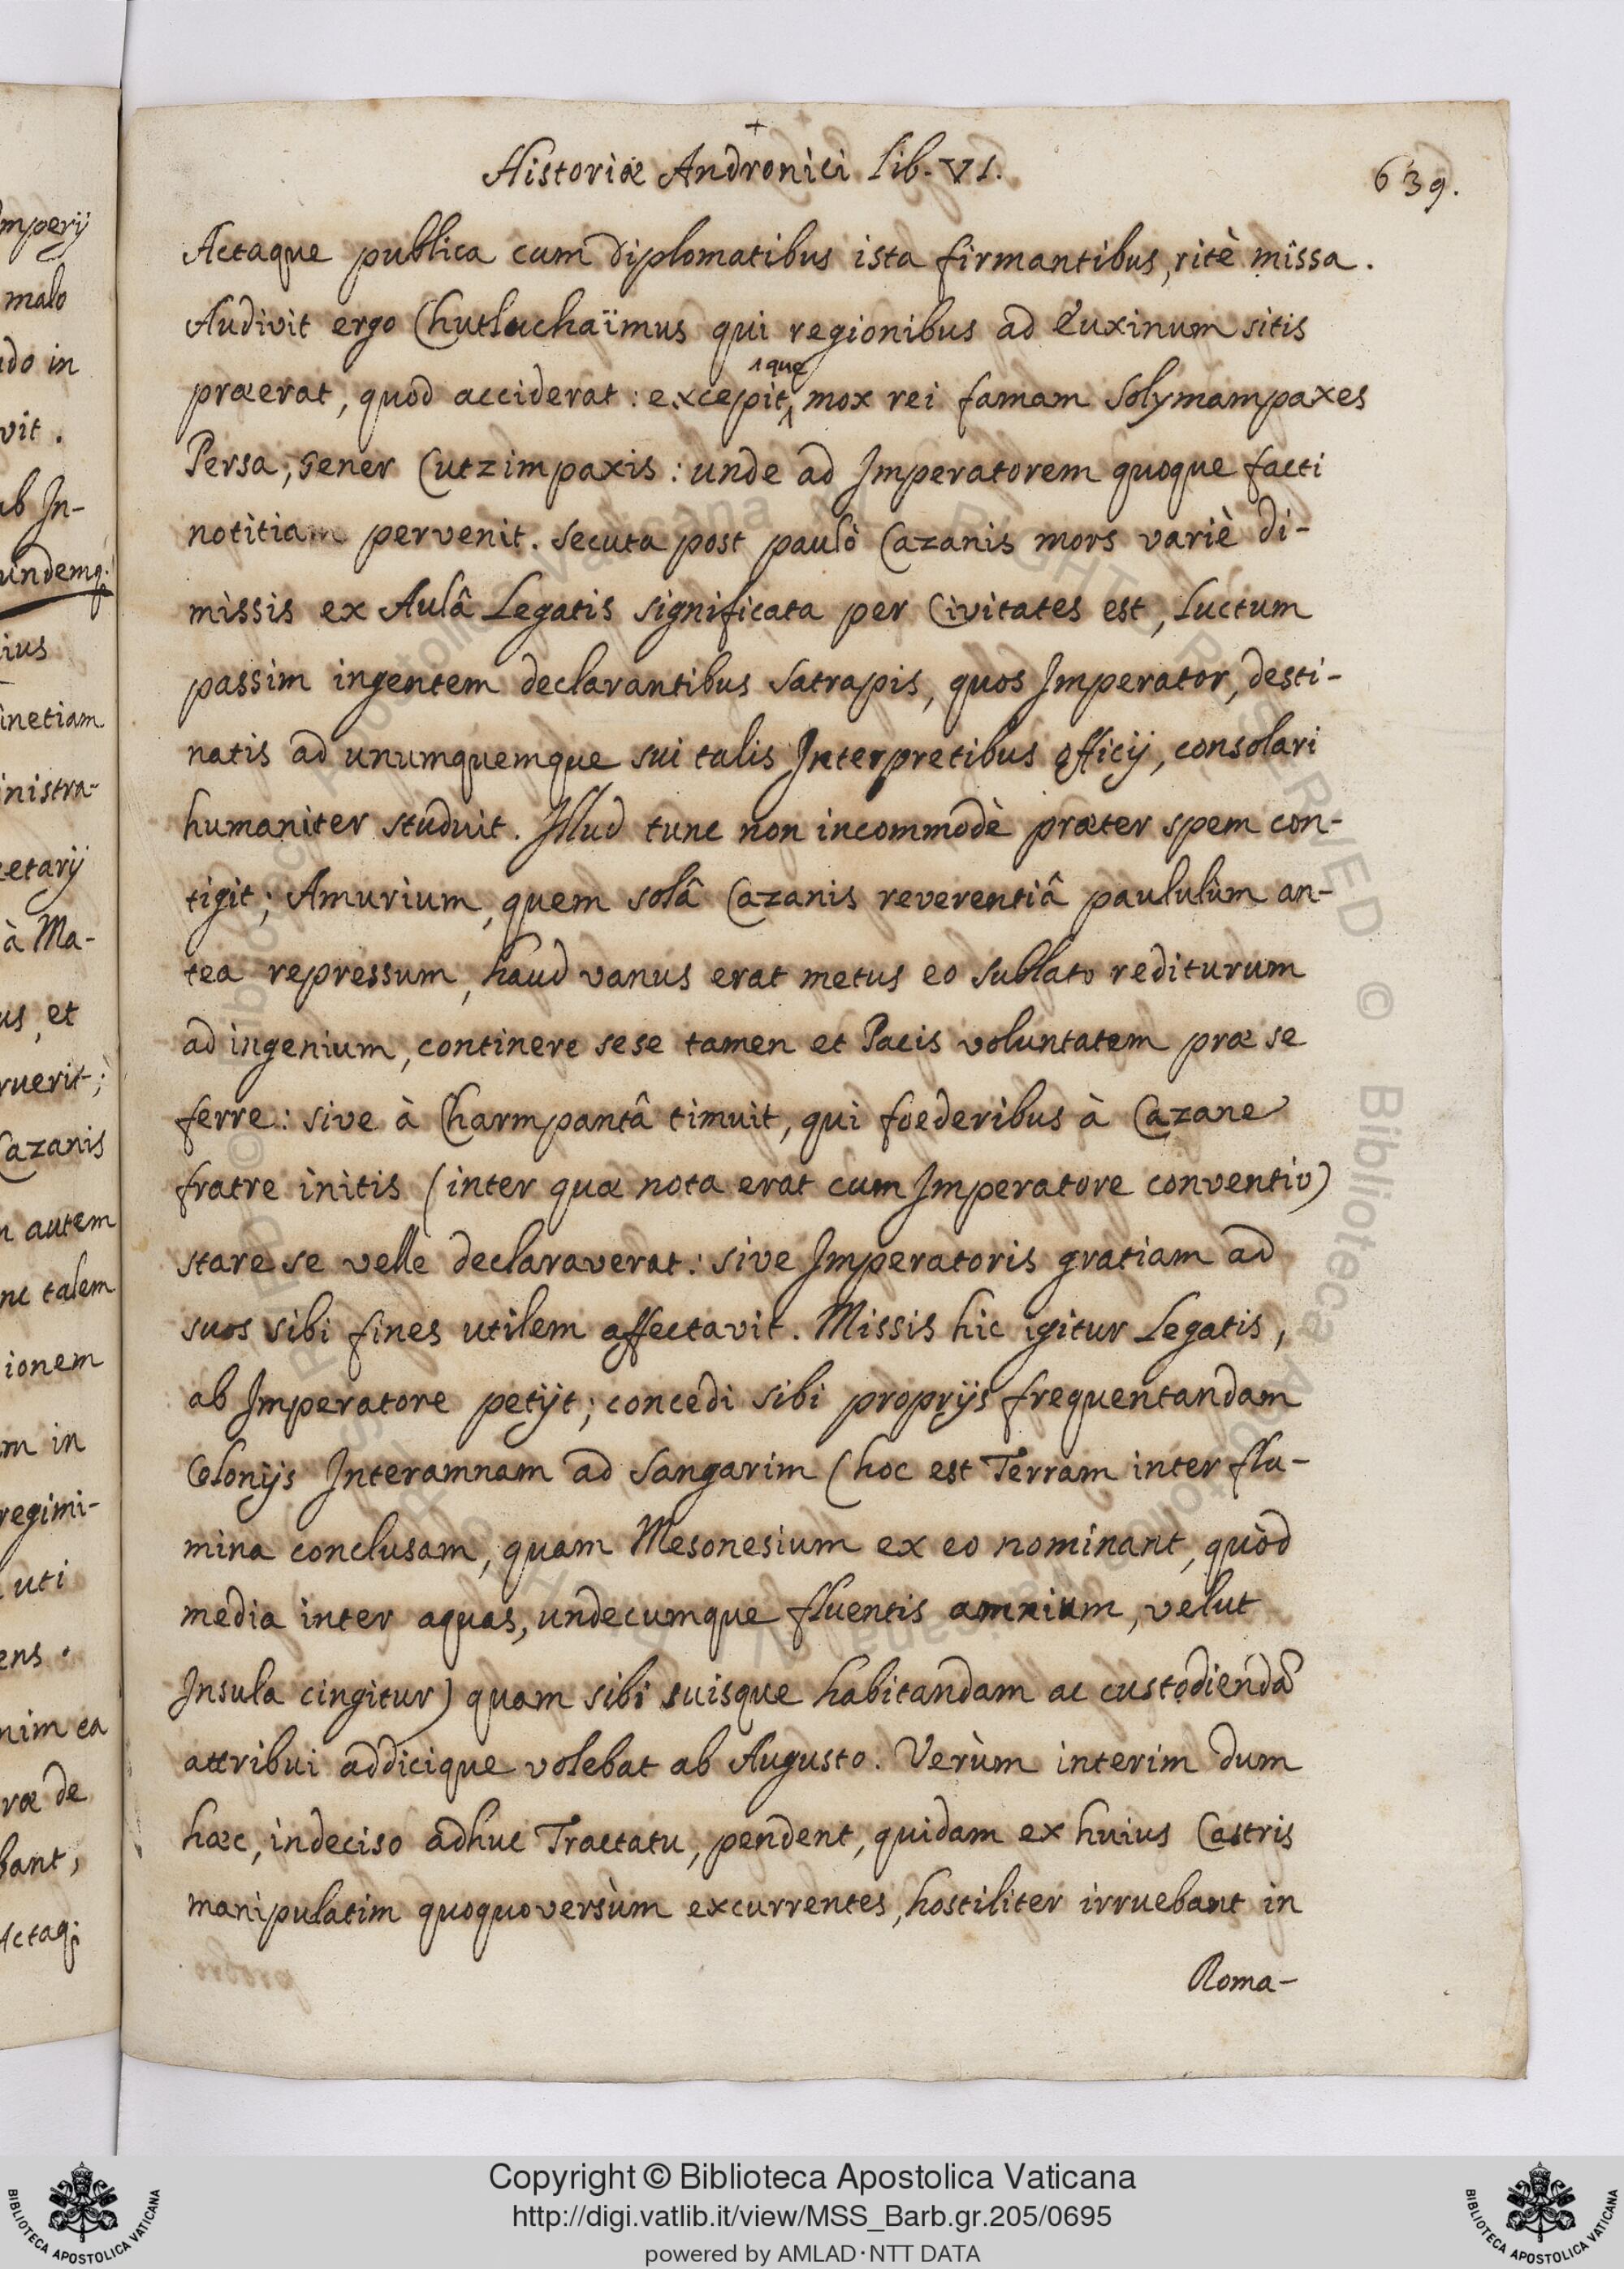 mperij
malo
do in
vit.
ub In-
undemq.
ius
inetiam
inistra-
etarij
à Ma-
us, et
ruerit;
Cazanis
autem
talem
ionem
m in
regimi-
uti
ens.
nim ea
ræ de
bant,
Actaq;
+
Historiæ Andronici Lib. VI.
639.
Actaque publica cum diplomatibus ista firmantibus, ritè missa.
Audivit ergo Chutluchaïmus qui regionibus ad Euxinum sitis
^que
præerat, quod acciderat: excepit^ mox rei famam Solymampaxes
Persa, gener Cutzimpaxis: unde ad Imperatorem quoque facti
notitiam pervenit. Secuta post paulò Cazanis mors variè di-
missis ex Aulâ Legatis significata per Civitates est, Luctum
passim ingentem declarantibus Satrapis, quos Imperator, desti-
natis ad unumquemque sui talis Interpretibus officij, consolari
humaniter studuit. Illud tunc non incommodè præter spem con-
tigit; Amurium, quem solâ Cazanis reverentiâ paululùm an-
tea repressum, haud vanus erat metus eo sublato rediturum
ad ingenium, continere sese tamen et Pacis voluntatem præ se
ferre: sive à Charmpantâ timuit, qui foederibus à Cazane
fratre initis (inter quæ nota erat cum Imperatore conventio)
stare se velle declaraverat: sive Imperatoris gratiam ad
suos sibi fines utilem affectavit. Missis hic igitur Legatis,
ab Imperatore petijt; concedi sibi proprijs frequentandam
Colonijs Interamnam ad Sangarim (hoc est Terram inter flu-
mina conclusam, quam Mesonesium ex eo nominant, quòd
media inter aquas, undecumque fluentis amnium, velut
Insula cingitur) quam sibi suisque habitandam ac custodiendã
attribui addicique volebat ab Augusto. Verùm interim dum
hæc, indeciso adhuc Tractatu, pendent, quidam ex huius Castris
manipulatim quoquoversùm excurrentes, hostiliter irruebant in
Roma-
Copyright © Biblioteca Apostolica Vaticana
http://digi.vatlib.it/view/MSS_Barb.gr.205/0695
powered by AMLAD·NTT DATA
BIBLIOTECA APOSTOLICA VATICANA
BIBLIOTECA APOSTOLICA VATICANA